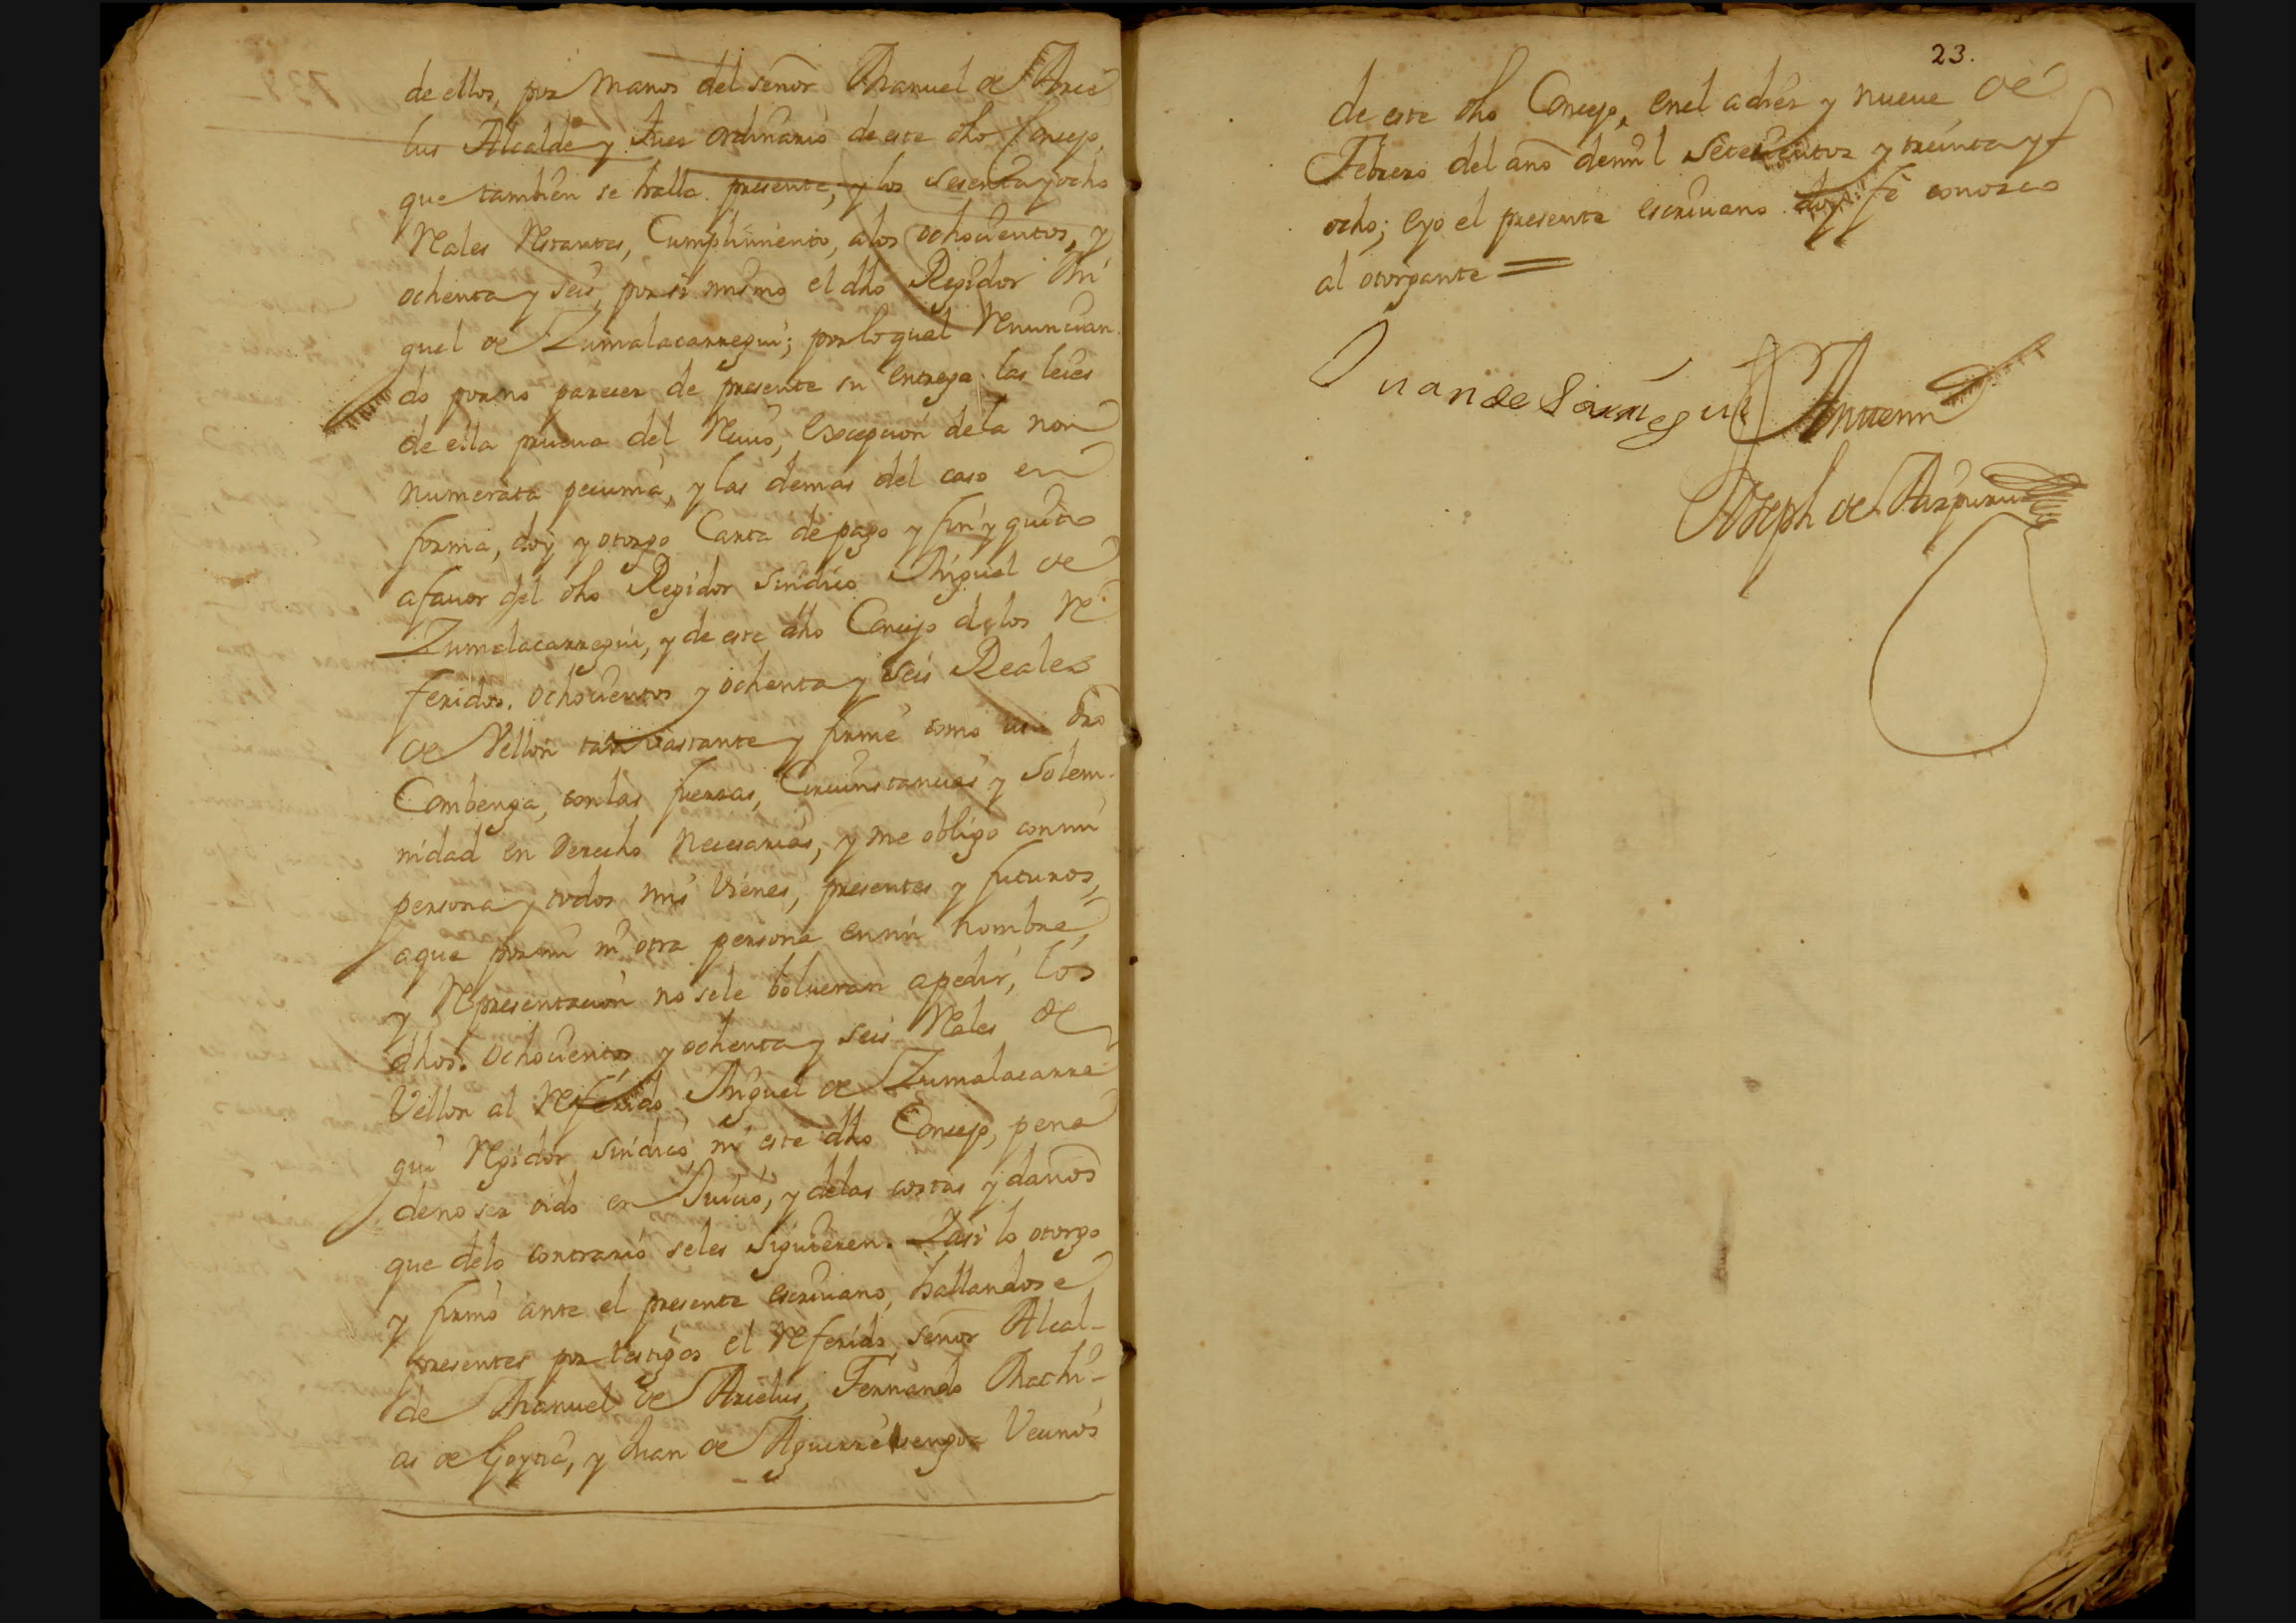 de ellos, por manos del señor Manuel de Arie
lus Alcalde y Juez ordinario de este dho Concejo,
que tambien se halla presente, y los sesenta y ocho
Reales Restantes, Cumplimiento, a los ochocientos, y
ochenta y seis, por si mismo el dho Regidor Mi
guel de Zumalacarregui; por lo qual Renuncian
do por no parecer de presente su entrega las leies
de ella prueva del Reciuo, excepcion de la non
numerata pecunia, y las demas del caso en
forma, doy y otorgo Carta de pago y fin y quito
a fauor del dho Regidor sindico Miguel de
Zumalacarregui, y de este dho Concejo de los Re
feridos. ochocientos y ochenta y seis Reales
de Vellon tan vastante y firme como a su dro
Combenga, con las fuerzas, Circunstancias y Solem-
nidad en Derecho Necesarias, y me obligo con mi
persona y todos mis Vienes, presentes y futuros,
a que por mi ni otra persona en mi nombre,
y Representacion no se le bolueran a pedir, los
dhos. ochocientos y ochenta y seis Reales de
Vellon al Referido Miguel de Zumalacarre
gui Regidor sindico ni este dho Concejo, pena
de no ser oido en Juicio, y de las costas y daños
que de lo contrario se les siguieren. Y asi lo otorgo
y firmo ante el presente escriuano, hallandose
presentes por testigos el Referido señor Alcal-
de Manuel de Arielus, Fernando Mathi-
as de Goytia, y Juan de Aguirrevengoa Vecinos
23.
de este dho Concejo, en el a diez y nueue de
Febrero del año de mil setecientos y treinta y
ocho; e yo el presente escriuano doy fe conozco
al otorgante =
Juan de
Ante mi
Joseph de Aizpuru